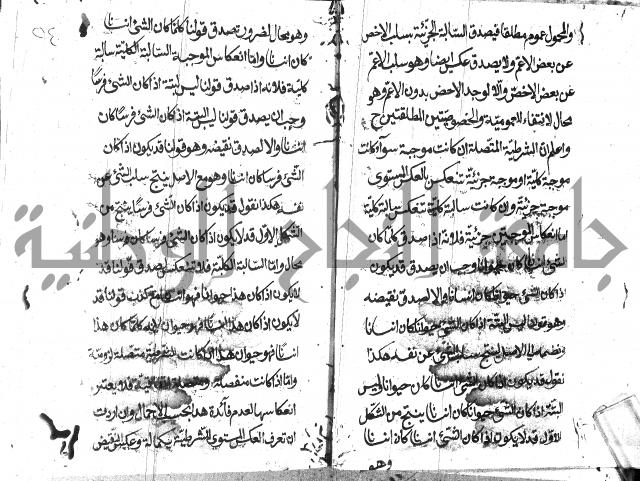 والمحمول عموم مطلقا فيصدق السالبة الجزئية بسلب الاخص
عن بعض الاعم ولا يصدق عكس ايضا وهو سلب الاعم
عن بعض الاخص والا لوجد الاخص بدون الاعم وهو
محال لانتفاء العمومية والخصوصيتين المطلقتين ح
واعلم ان الشرطية المتصلة ان كانت موجبة سواء كانت
موجبة كلية او موجبة جزئية تنعكس بالعكس المستوي
موجبة جزئية وان كانت سالبة كلية تنعكس سالبة كلية
اما انعكاس الموجبتين جزئية فلانه اذا صدق كلما كان
الشئ انسانا كان حيوانا وجب ان يصدق قد يكون
اذا كان الشئ حيوانا كان انسانا والا لصدق نقيضه
وهو قولنا ليس البتة اذا كان الشئ حيوانا كان انسانا
ونضمه الى الاصل لينتج سلب الشئ عن نفسه هكذا
نقول قد يكون اذا كان الشئ انسانا كان حيوانا وليس
البتة اذا كان الشئ حيوانا كان انسانا ينتج من الشكل
الاول قد لا يكون اذا كان الشئ انسانا كان انسانا
وهو
وهو محال لضرورت صدق قولنا كلما كان الشئ انسانا
كان انسانا واما انعكاس الموجبة السالبة الكلية سالبة
كلية فلانه اذا صدق قولنا ليس البتة اذا كان الشئ فرسا
وجب ان يصدق قولنا ليس البتة اذا كان الشئ فرسا كان
انسانا والا لصدق نقيضه وهو قولنا قد يكون اذا كان
الشئ فرسا كان انسانا وهو مع الاصل ينتج سلب الشئ عن
نفسه هكذا نقول قد يكون اذا كان الشئ فرسا ينتج من
الشكل الاول قد لا يكون اذا كان الشئ فرسا كان فرسا وهو
محال واما السالبة الكلية فلا تنعكس لصدق قولنا قد
لا يكون اذا كان هذا حيوانا فهو انسان مع كذب قولنا قد
لا يكون اذا كان هذا انسانا فهو حيوان لانه كلما كان هذا
انسانا فهو حيوان هذا اذا كانت الشرطية متصلة لزومية
واما اذا كانت منفصلة او متصلة اتفاقية فلا يعتبر
انعكاسها لعدم فائدة هذا بحسب الاجمال وان اردت
ان تعرف العكس المستوي للشرطيتين بكماله وعكس النقيض
جامعة النجاح الوطنية